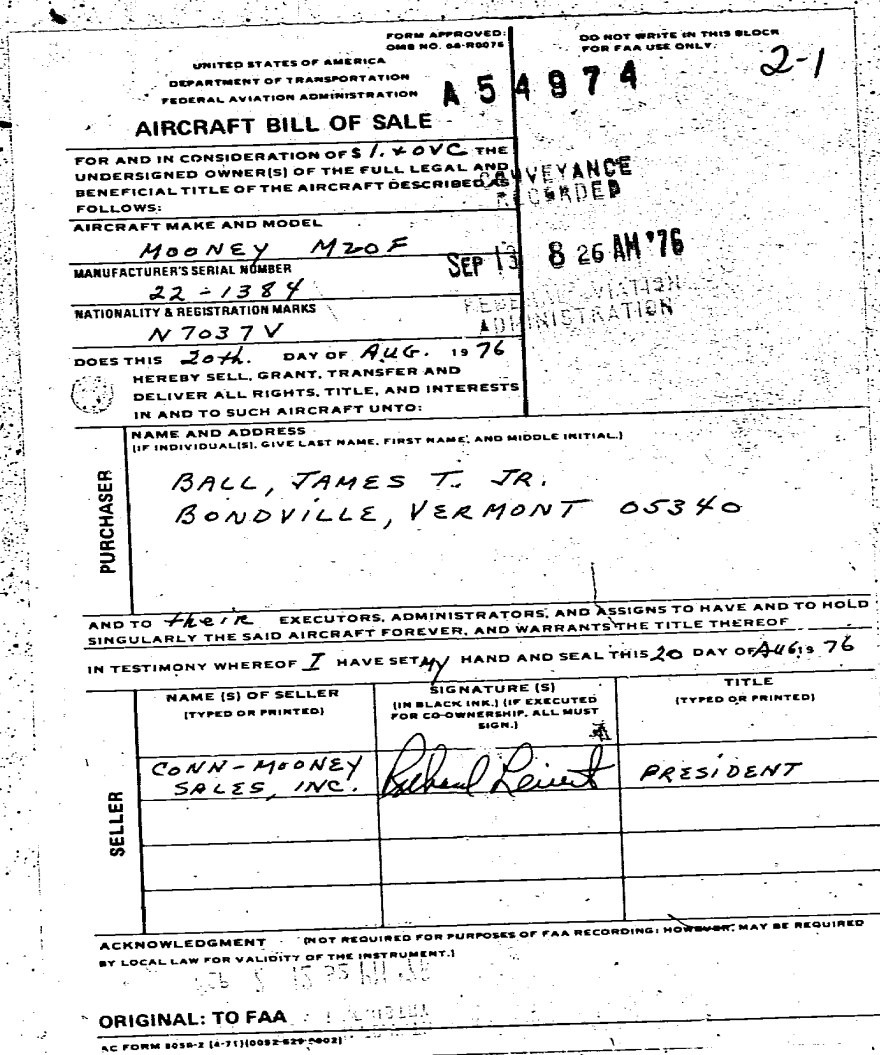 FORM APPROVED:
OMB NO. 04-R0076
UNITED STATES OF AMERICA
DEPARTMENT OF TRANSPORTATION
FEDERAL AVIATION ADMINISTRATION
AIRCRAFT BILL OF SALE
DO NOT WRITE IN THIS BLOCK
FOR FAA USE ONLY.
2-1
A54974
FOR AND IN CONSIDERATION OF $ 1. & OVC THE
UNDERSIGNED OWNER(S) OF THE FULL LEGAL AND
BENEFICIAL TITLE OF THE AIRCRAFT DESCRIBED AS
FOLLOWS:
CONVEYANCE
RECORDED
AIRCRAFT MAKE AND MODEL
MOONEY M20F
SEP 13 8 26 AM '76
MANUFACTURER'S SERIAL NUMBER
22-1384
FEDERAL AVIATION
ADMINISTRATION
NATIONALITY & REGISTRATION MARKS
N7037V
DOES THIS 20th. DAY OF AUG. 19 76
HEREBY SELL, GRANT, TRANSFER AND
DELIVER ALL RIGHTS, TITLE, AND INTERESTS
IN AND TO SUCH AIRCRAFT UNTO:
PURCHASER
NAME AND ADDRESS
(IF INDIVIDUAL(S), GIVE LAST NAME, FIRST NAME, AND MIDDLE INITIAL.)
BALL, JAMES T. JR.
BONDVILLE, VERMONT 05340
AND TO their EXECUTORS, ADMINISTRATORS, AND ASSIGNS TO HAVE AND TO HOLD
SINGULARLY THE SAID AIRCRAFT FOREVER, AND WARRANTS THE TITLE THEREOF
IN TESTIMONY WHEREOF I HAVE SET MY HAND AND SEAL THIS 20 DAY OF AUG 19 76
SELLER
NAME (S) OF SELLER
(TYPED OR PRINTED)
SIGNATURE (S)
(IN BLACK INK.) (IF EXECUTED
FOR CO-OWNERSHIP, ALL MUST
SIGN.)
TITLE
(TYPED OR PRINTED)
CONN-MOONEY
SALES, INC.
PRESIDENT
ACKNOWLEDGMENT (NOT REQUIRED FOR PURPOSES OF FAA RECORDING: HOWEVER, MAY BE REQUIRED
BY LOCAL LAW FOR VALIDITY OF THE INSTRUMENT.)
ORIGINAL: TO FAA
AC FORM 8050-2 (4-71)(0052-629-0002)